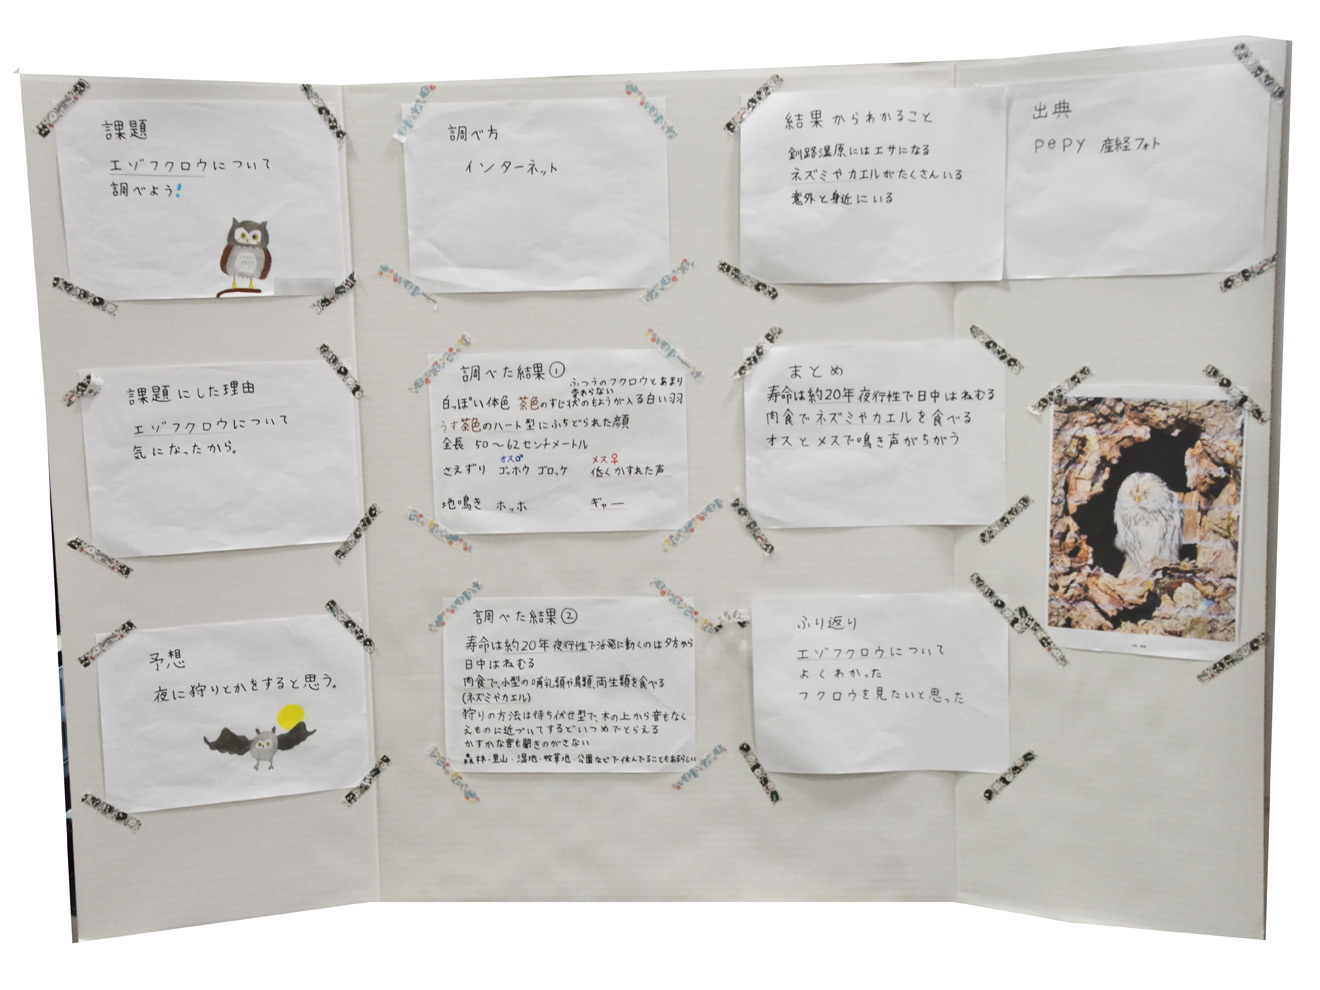 課題
エゾフクロウについて
調べよう!
課題にした理由
エゾフクロウについて
気になったから。
予想
夜に狩りとかをすると思う。
調べ方
インターネット
調べた結果①
ふつうのフクロウとあまり
変わらない
白っぽい体色 茶色のすじ状のもようが入る白い羽
うす茶色のハート型にふちどられた顔
全長 50〜62センチメートル
オス♂ メス♀
さえずり ゴッホウ ゴロッケ 低くかすれた声
地鳴き ホッホ ギャー
調べた結果②
寿命は約20年夜行性で活発に動くのは夕方から
日中はねむる
肉食で、小型の哺乳類や鳥類、両生類を食べる
(ネズミやカエル)
狩りの方法は待ち伏せ型で、木の上から音もなく
えものに近づいてするどいつめでとらえる
かすかな音も聞きのがさない
森林・里山・湿地・牧草地・公園などで休んでることもあるらしい
結果からわかること
釧路湿原にはエサになる
ネズミやカエルがたくさんいる
意外と身近にいる
まとめ
寿命は約20年夜行性で日中はねむる
肉食でネズミやカエルを食べる
オスとメスで鳴き声がちがう
ふり返り
エゾフクロウについて
よくわかった
フクロウを見たいと思った
出典
pepy 産経フォト